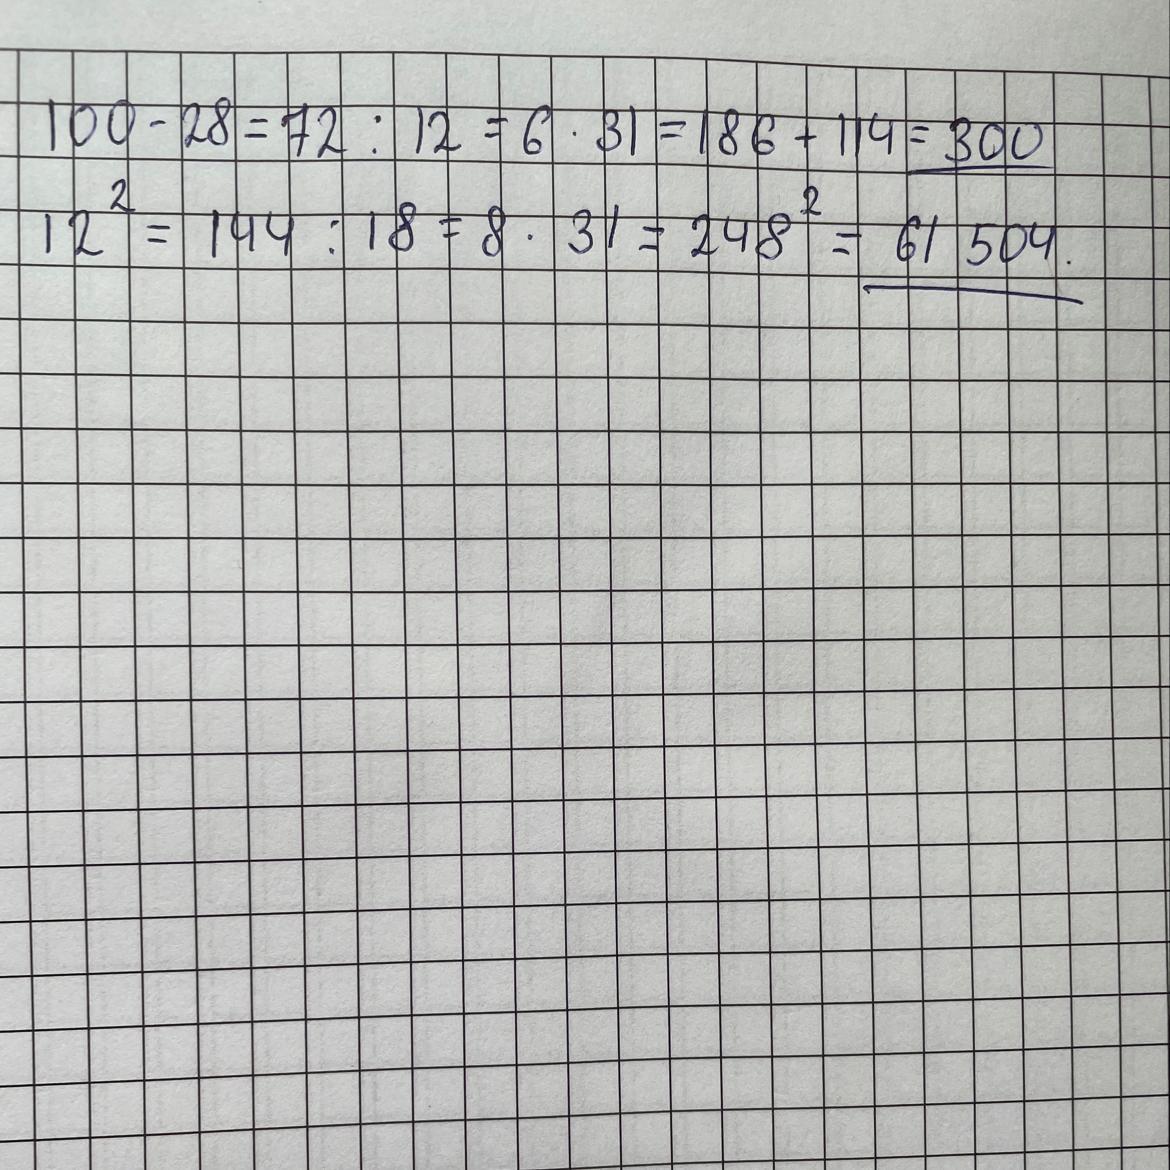 100 - 28 = 72 : 12 = 6 · 31 = 186 + 114 = 300
12² = 144 : 18 = 8 · 31 = 248² = 61 504.